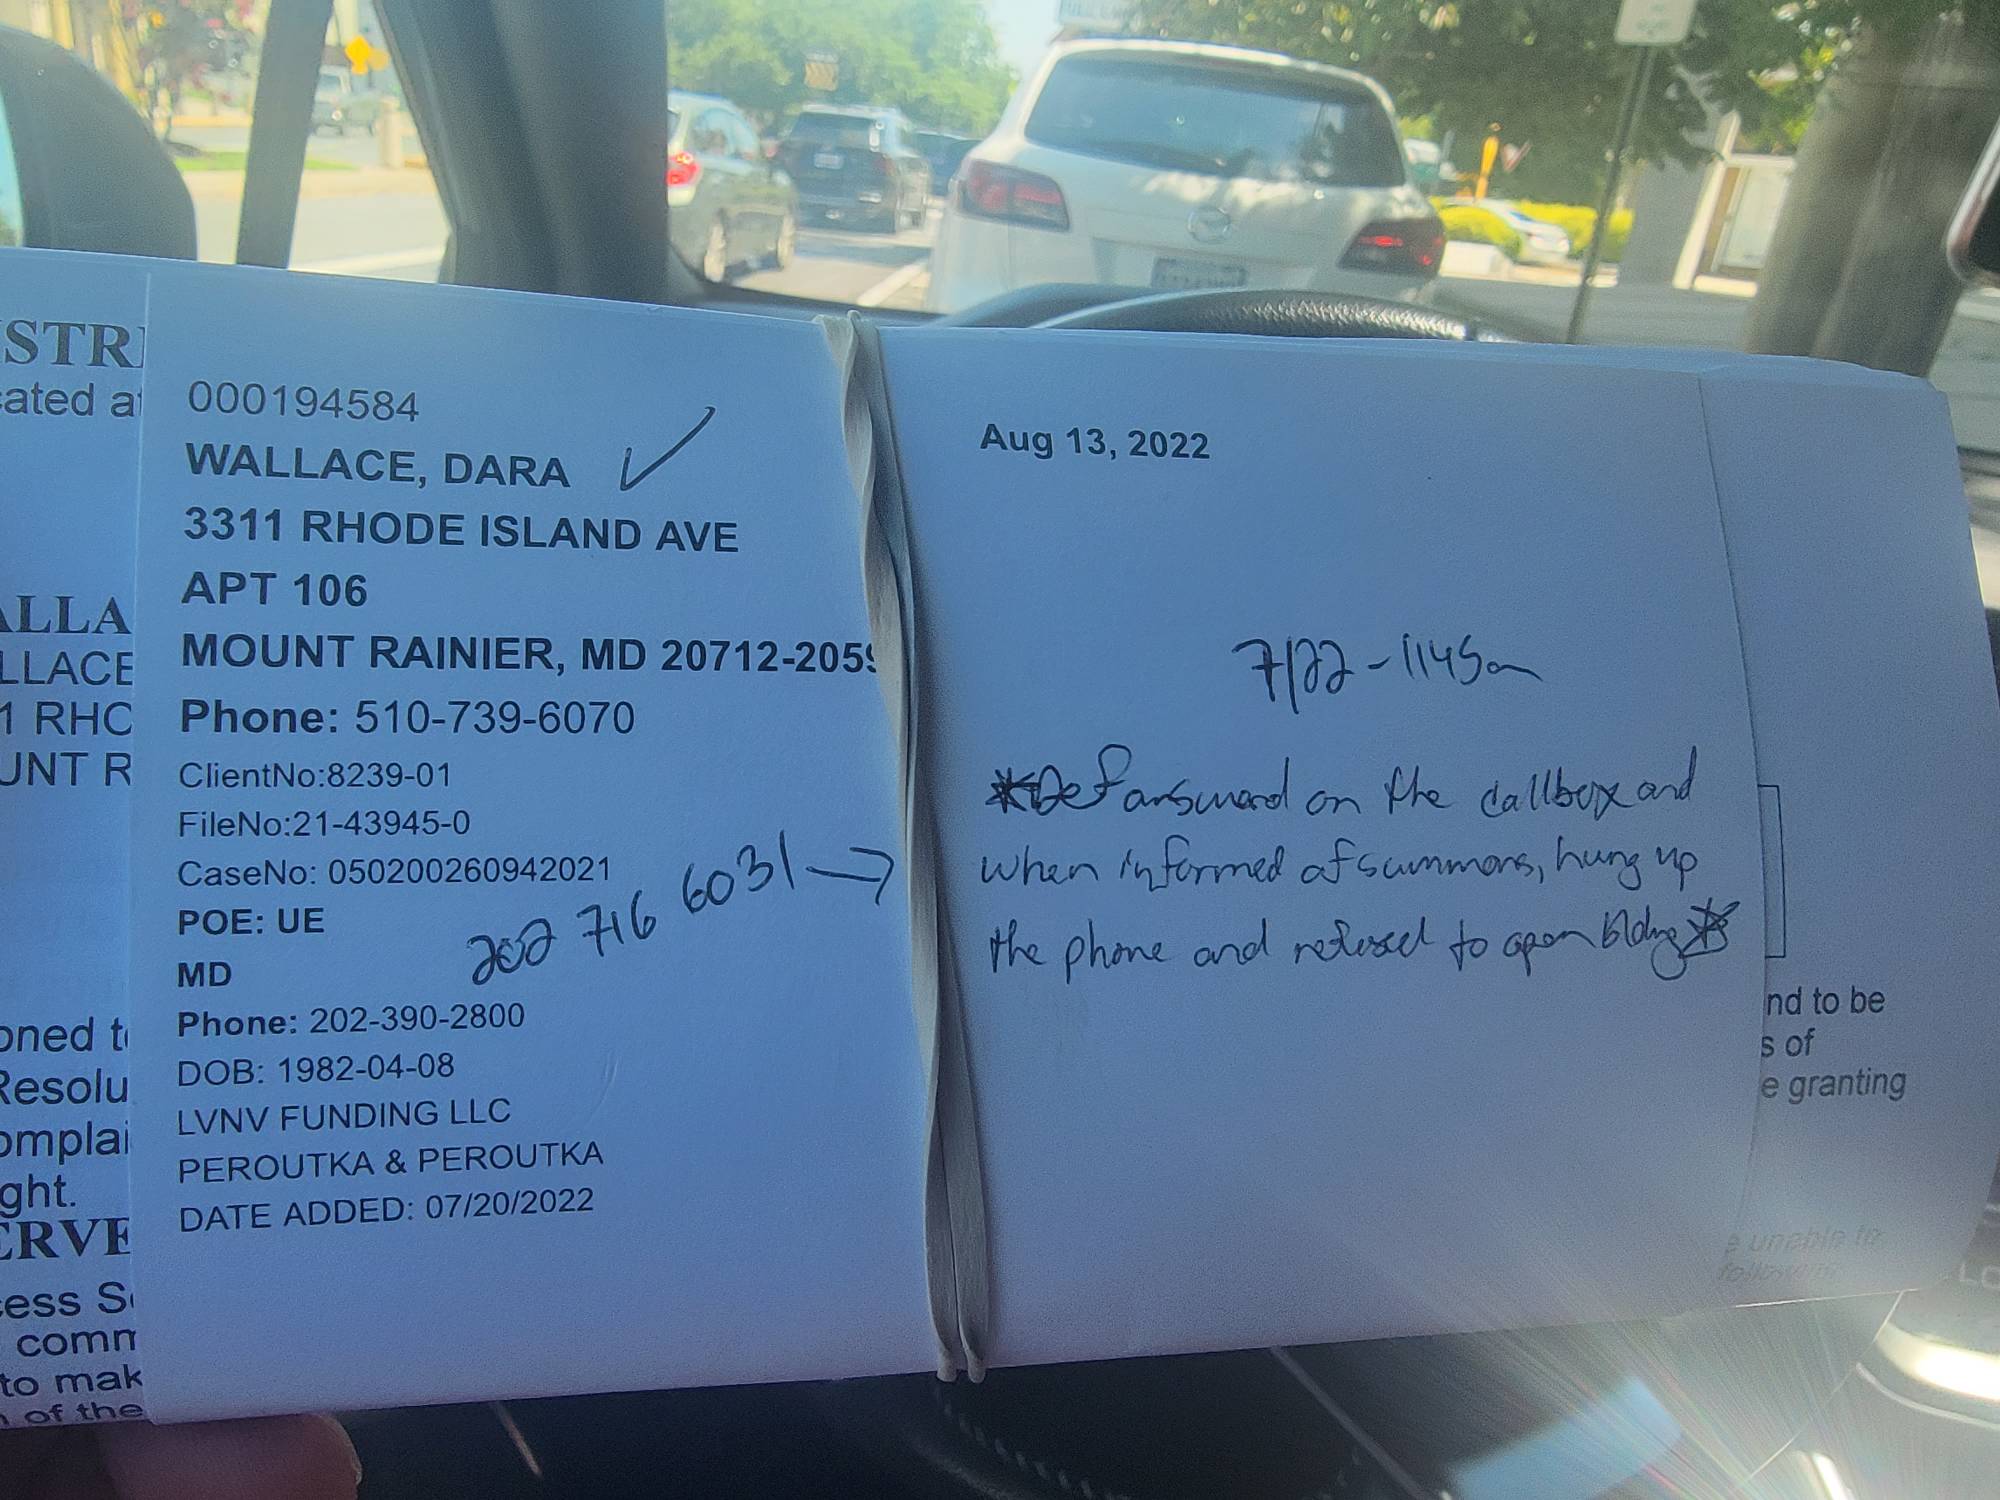 STR
cated at
ALLA
LLACE
1 RHO
UNT R
oned t
Resolu
omplai
ght.
ERVE
cess S
comm
to mak
of the
000194584
WALLACE, DARA
3311 RHODE ISLAND AVE
APT 106
MOUNT RAINIER, MD 20712-2059
Phone: 510-739-6070
ClientNo:8239-01
FileNo:21-43945-0
CaseNo: 050200260942021
POE: UE
202 716 6031 →
MD
Phone: 202-390-2800
DOB: 1982-04-08
LVNV FUNDING LLC
PEROUTKA & PEROUTKA
DATE ADDED: 07/20/2022
Aug 13, 2022
7/22 - 1145am
*Def answered on the callbox and
when informed of summons, hung up
the phone and refused to open bldng*
nd to be
s of
e granting
e unable to